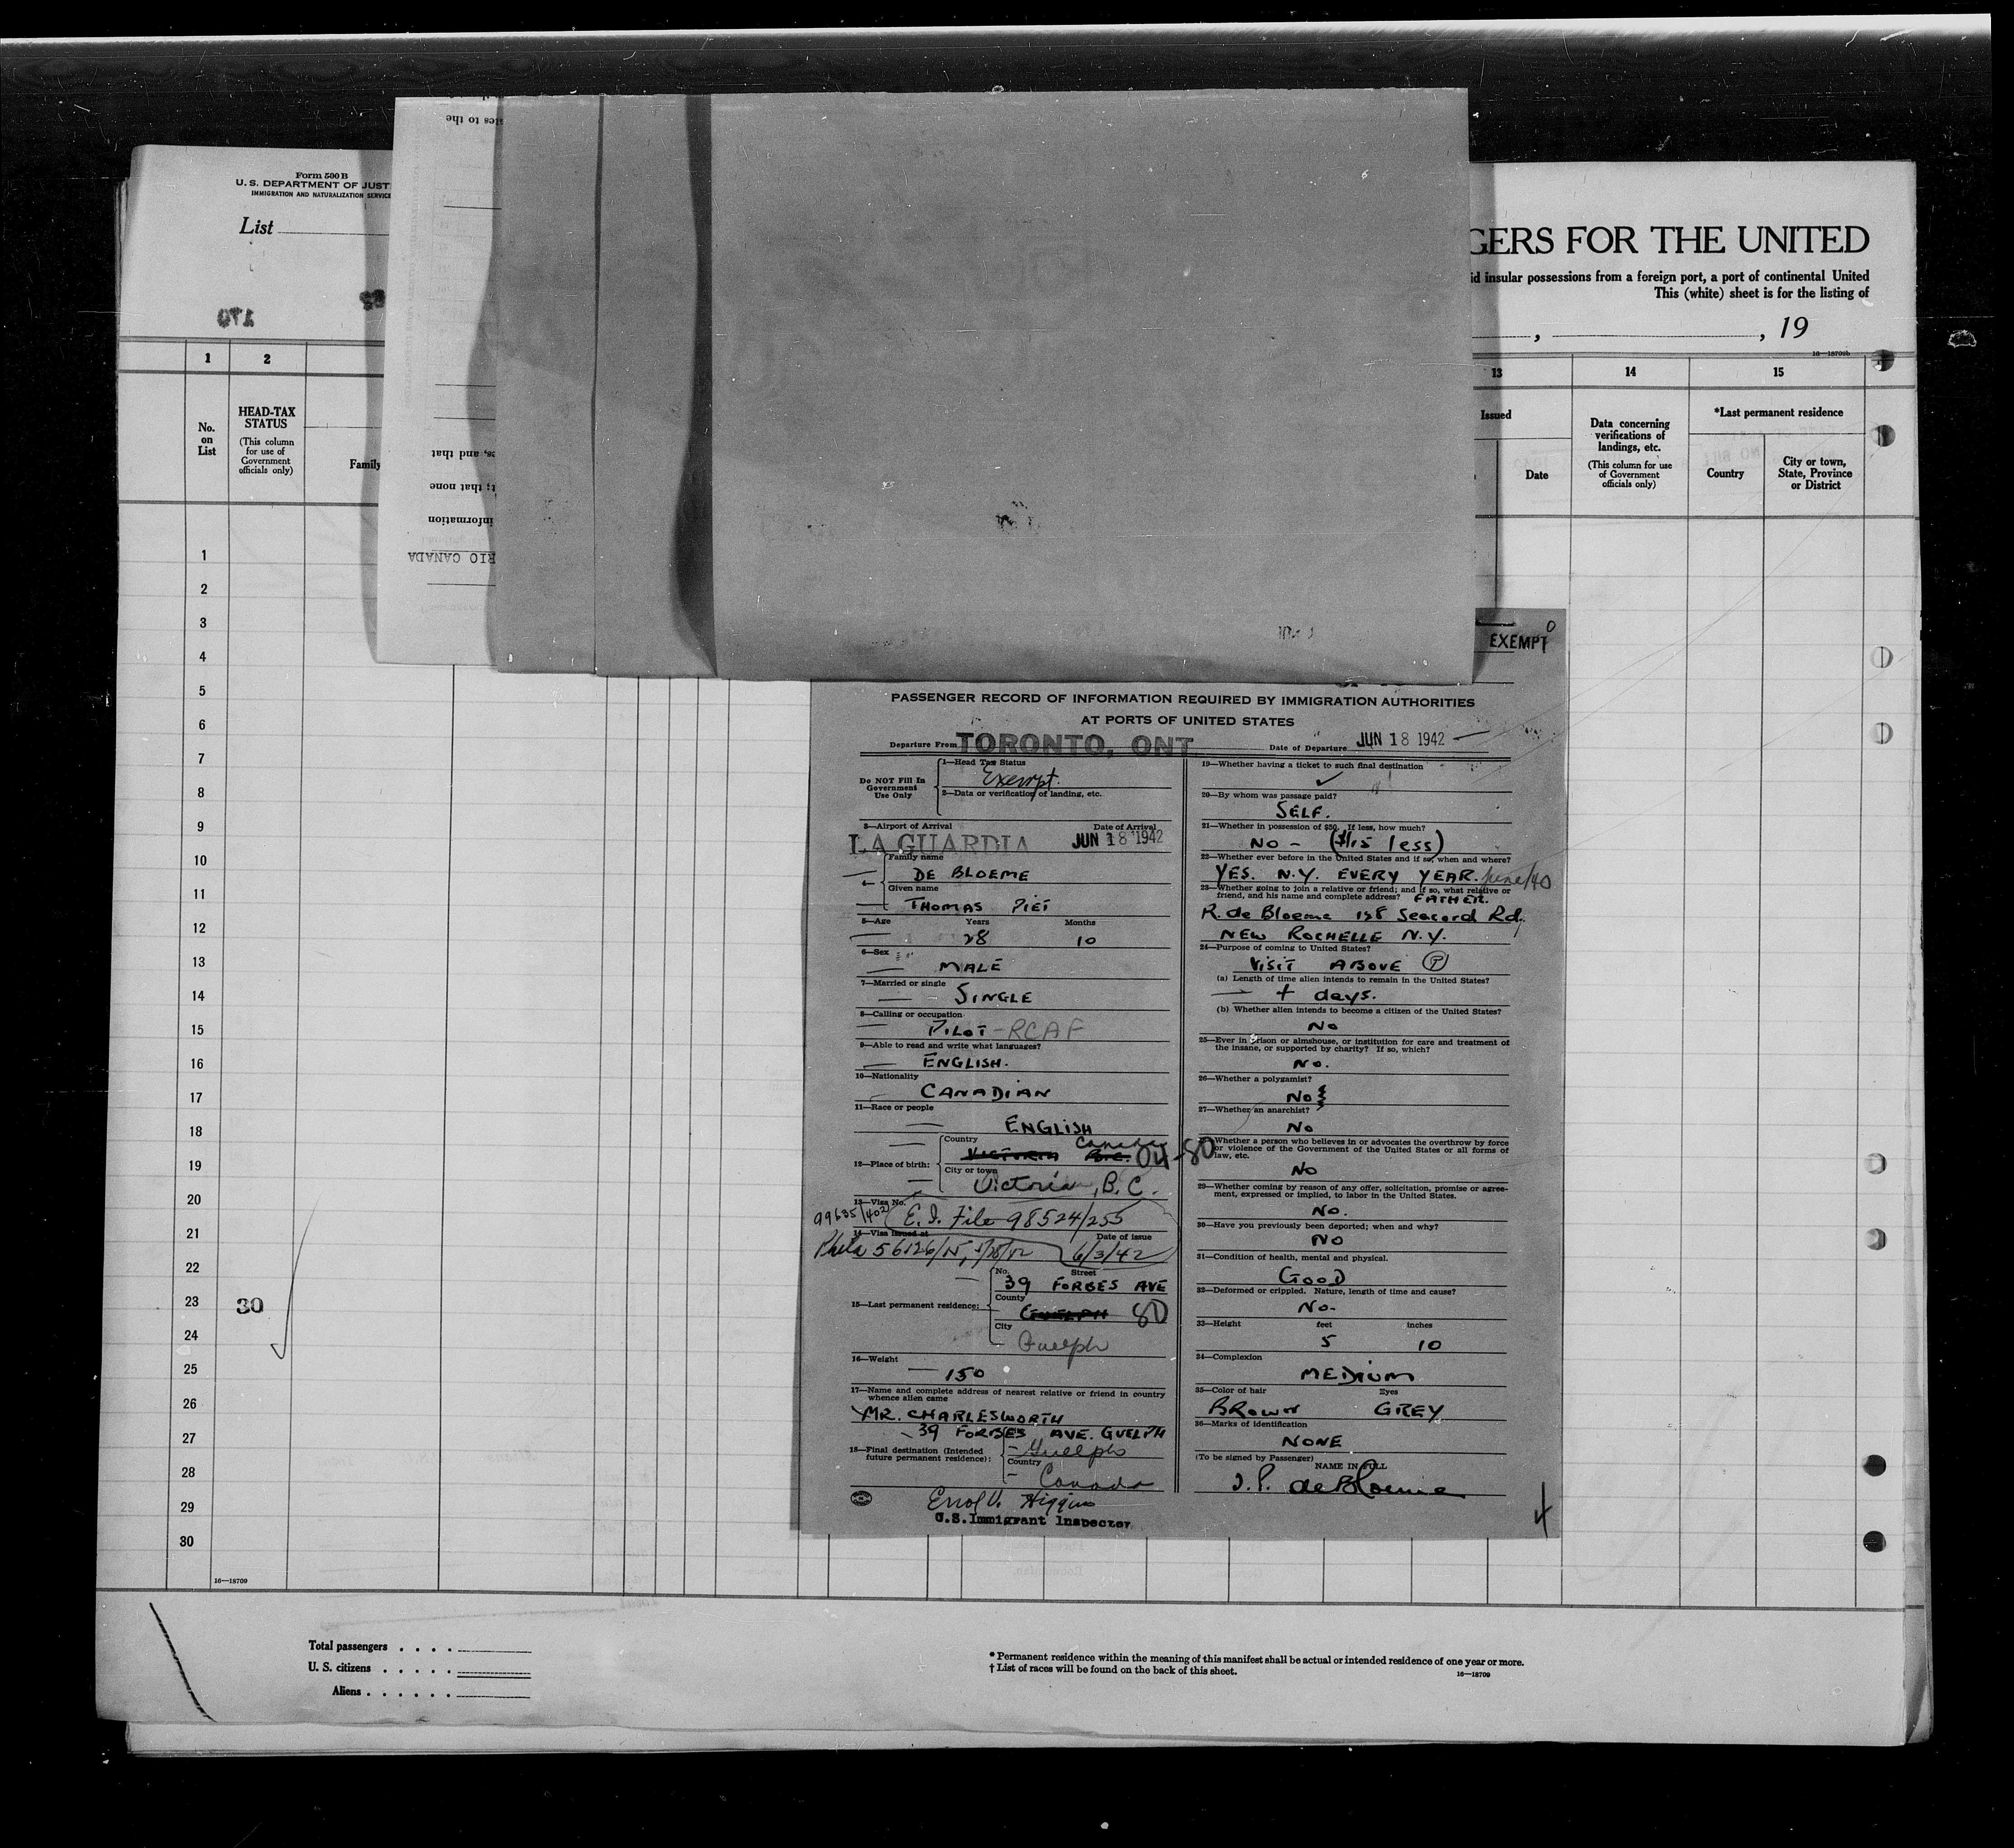 Form 500 B
U. S. DEPARTMENT OF JUST
IMMIGRATION AND NATURALIZATION SERVICE
List
170
ates to the
es, and that
t; that none
information
RIO CANADA
GERS FOR THE UNITED
id insular possessions from a foreign port, a port of continental United
This (white) sheet is for the listing of
, , 19
16—18709b
1 2 13 14 15
No. on List
HEAD-TAX STATUS
(This column for use of Government officials only)
Family
Issued
Date
Data concerning verifications of landings, etc.
(This column for use of Government officials only)
*Last permanent residence
Country
City or town, State, Province or District
1
2
3
4
5
6
7
8
9
10
11
12
13
14
15
16
17
18
19
20
21
22
23 30
24
25
26
27
28
29
30
16—18709
EXEMPT
PASSENGER RECORD OF INFORMATION REQUIRED BY IMMIGRATION AUTHORITIES
AT PORTS OF UNITED STATES
Departure From TORONTO, ONT Date of Departure JUN 18 1942
Do NOT Fill In Government Use Only
1—Head Tax Status
Exempt.
2—Data or verification of landing, etc.
3—Airport of Arrival Date of Arrival
LA GUARDIA JUN 18 1942
4—
Family name
DE BLOEME
Given name
THOMAS PIET
5—Age Years Months
28 10
6—Sex
MALE
7—Married or single
SINGLE
8—Calling or occupation
PILOT - RCAF
9—Able to read and write what languages?
ENGLISH.
10—Nationality
CANADIAN
11—Race or people
ENGLISH
12—Place of birth:
Country
Canada
VICTORIA B.C. 04-80
City or town
Victoria, B.C.
13—Visa No.
99635/402 E. I. File 98524/255
14—Visa issued at Date of issue
Phila 56126/15, 6/3/42
15—Last permanent residence:
No. Street
39 FORBES AVE
County
GUELPH 80
City
Guelph
16—Weight
150
17—Name and complete address of nearest relative or friend in country
whence alien came
MR. CHARLESWORTH
39 FORBES AVE. GUELPH
18—Final destination (Intended future permanent residence):
Guelph
Country
Canada
Errol V. Higgins
U.S. Immigrant Inspector
19—Whether having a ticket to such final destination
✓
20—By whom was passage paid?
SELF.
21—Whether in possession of $50. If less, how much?
NO - ($15 less)
22—Whether ever before in the United States and if so, when and where?
YES. N.Y. EVERY YEAR. June/40
23—Whether going to join a relative or friend; and if so, what relative or
friend, and his name and complete address? FATHER.
R. de Bloeme 158 Seacord Rd.
NEW ROCHELLE N.Y.
24—Purpose of coming to United States?
VISIT ABOVE (P)
(a) Length of time alien intends to remain in the United States?
days.
(b) Whether alien intends to become a citizen of the United States?
No
25—Ever in prison or almshouse, or institution for care and treatment of
the insane, or supported by charity? If so, which?
No.
26—Whether a polygamist?
No
27—Whether an anarchist?
No
Whether a person who believes in or advocates the overthrow by force
or violence of the Government of the United States or all forms of
law, etc.
No
29—Whether coming by reason of any offer, solicitation, promise or agree-
ment, expressed or implied, to labor in the United States.
No.
30—Have you previously been deported; when and why?
NO
31—Condition of health, mental and physical.
GOOD
32—Deformed or crippled. Nature, length of time and cause?
No-
33—Height feet inches
5 10
34—Complexion
MEDIUM
35—Color of hair Eyes
BROWN GREY
36—Marks of identification
NONE
(To be signed by Passenger) NAME IN FULL
T. P. deBloeme
4
Total passengers . . . .
U. S. citizens . . . . .
Aliens . . . . . .
* Permanent residence within the meaning of this manifest shall be actual or intended residence of one year or more.
† List of races will be found on the back of this sheet.
16—18709